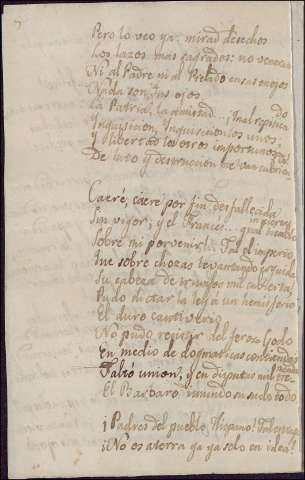 Pero lo veo ya, mirad desechos
Los lazos mas sagrados: no veneran
Ni al Padre ni al Prelado en sus enojos
Nada son tus ojos
La Patria, la amistad... ¡Inal
Inquisicion, Inquisicion los unos,
y libertad los otros importunos
De luto y destruccion me van cubriendo

Caeré, caere por fin desfallecida
Sin vigor; y el Frances!..
Sobre mi porvenir! Tal el imperio
Que sobre chozas levantando erguida
Su cabeza de triunfos mil cubierta
Pudo dictar la ley á un hemisferio
El duro cautiverio
No pudo resistir del feroz Godo
En medio de dogmaticas contiendas
Faltó union, y en disputas mil
El Barbaro inundó su suelo todo

¡Padres del pueblo Hispano!
¡No os aterra ya ya solo en idea!